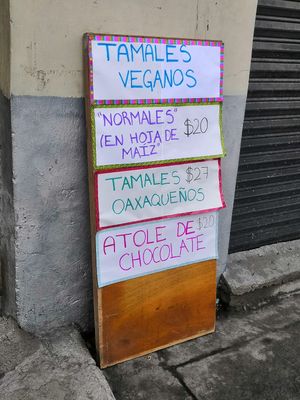 TAMALES
VEGANOS
"NORMALES"
(EN HOJA DE $20
MAIZ"
TAMALES $27
OAXAQUEÑOS
ATOLE DE $20
CHOCOLATE